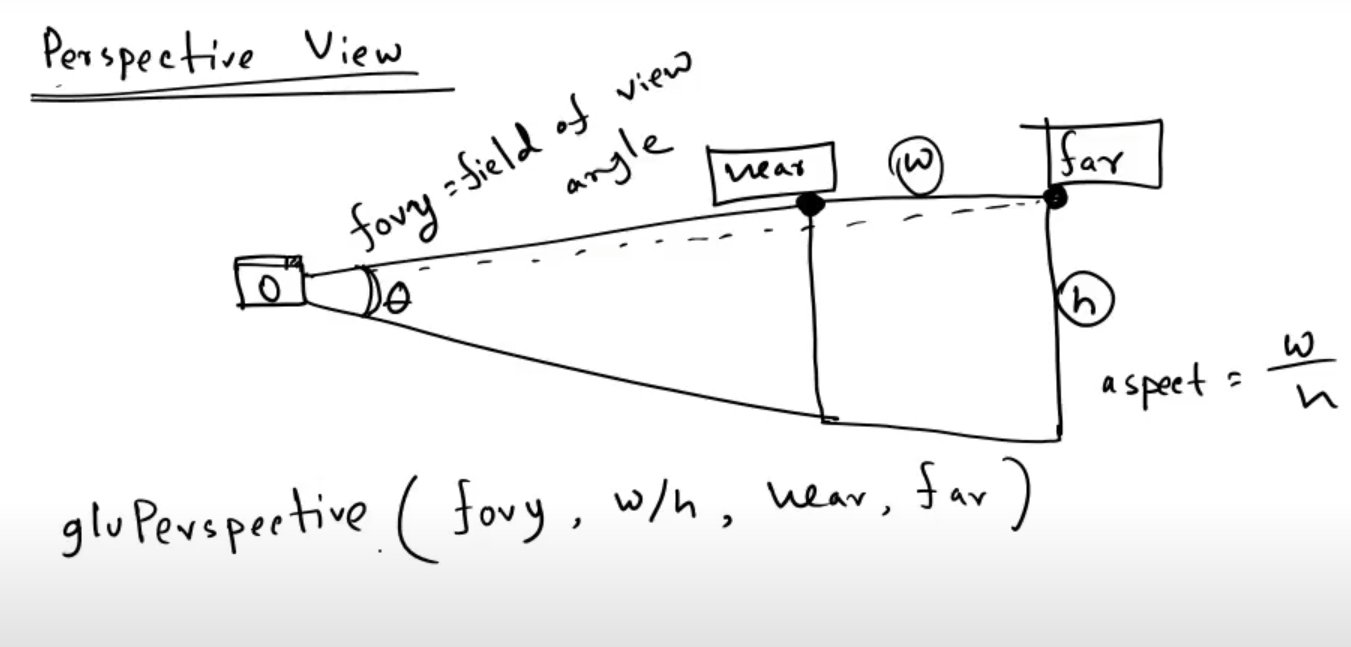 Perspective View
fovy = field of view
angle
near
w
far
O
θ
h
aspect = w/h
gluPerspective ( fovy, w/h, near, far )